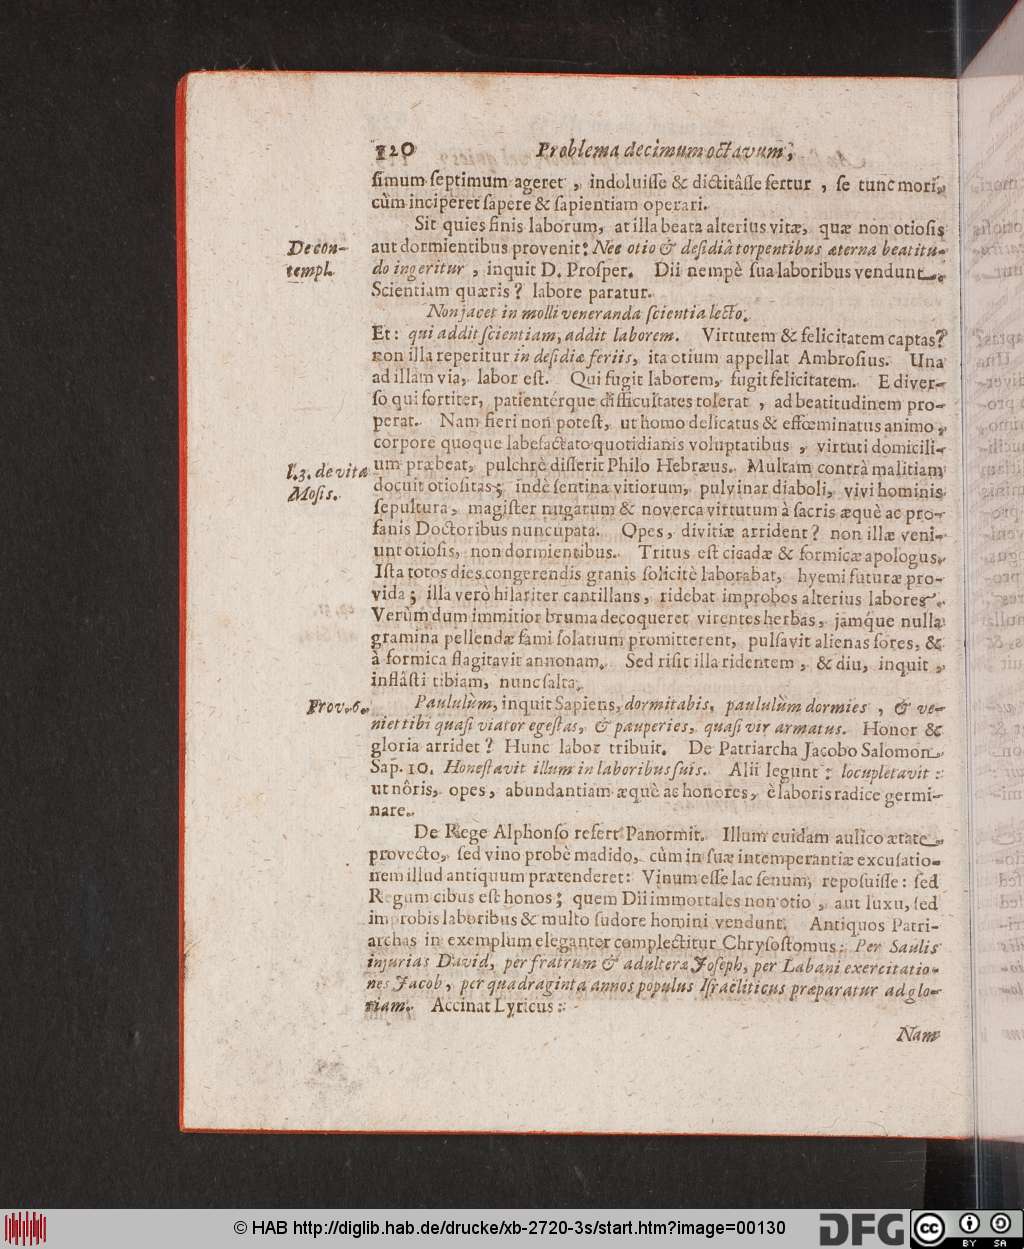 120 Problema decimum octavum,
simum septimum ageret, indoluisse & dictitâsse fertur, se tunc mori,
cùm inciperet sapere & sapientiam operari.
Sit quies finis laborum, at illa beata alterius vitæ, quæ non otiosis
De con-
aut dormientibus provenit: Nec otio & desidiâ torpentibus æterna beatitu-
templ.
do ingeritur, inquit D. Prosper. Dii nempè sua laboribus vendunt.
Scientiam quæris? labore paratur.
Non jacet in molli veneranda scientia lecto.
Et: qui addit scientiam, addit laborem. Virtutem & felicitatem captas?
non illa reperitur in desidiæ feriis, ita otium appellat Ambrosius. Una
ad illam via, labor est. Qui fugit laborem, fugit felicitatem. E diver-
so qui fortiter, patientérque difficultates tolerat, ad beatitudinem pro-
perat. Nam fieri non potest, ut homo delicatus & effœminatus animo,
corpore quoque labefactato quotidianis voluptatibus, virtuti domicili-
l.3. de vita
um præbeat, pulchrè disserit Philo Hebræus. Multam contrà malitiam
Mosis.
docuit otiositas; indè sentina vitiorum, pulvinar diaboli, vivi hominis
sepultura, magister nugarum & noverca virtutum à sacris æquè ac pro-
fanis Doctoribus nuncupata. Opes, divitiæ arrident? non illæ veni-
unt otiosis, non dormientibus. Tritus est cicadæ & formicæ apologus.
Ista totos dies congerendis granis solicitè laborabat, hyemi futuræ pro-
vida; illa verò hilariter cantillans, ridebat improbos alterius labores.
Verùm dum immitior bruma decoqueret virentes herbas, jamq́ue nulla
gramina pellendæ fami solatium promitterent, pulsavit alienas fores, &
à formica flagitavit annonam. Sed risit illa ridentem, & diu, inquit,
inflâsti tibiam, nunc salta.
Prov. 6.
Paululùm, inquit Sapiens, dormitabis, paululùm dormies, & ve-
niet tibi quasi viator egestas, & pauperies, quasi vir armatus. Honor &
gloria arridet? Hunc labor tribuit. De Patriarcha Jacobo Salomon
Sap. 10. Honestavit illum in laboribus suis. Alii legunt: locupletavit:
ut nôris, opes, abundantiam æquè ac honores, è laboris radice germi-
nare.
De Rege Alphonso refert Panormit. Illum cuidam aulico ætate
provecto, sed vino probè madido, cùm in suæ intemperantiæ excusatio-
nem illud antiquum prætenderet: Vinum esse lac senum, reposuisse: sed
Regum cibus est honos; quem Dii immortales non otio, aut luxu, sed
improbis laboribus & multo sudore homini vendunt. Antiquos Patri-
archas in exemplum eleganter complectitur Chrysostomus: Per Saulis
injurias David, per fratrum & adulteræ Joseph, per Labani exercitatio-
nes Jacob, per quadraginta annos populus Israëliticus præparatur ad glo-
riam. Accinat Lyricus:
Nam
© HAB http://diglib.hab.de/drucke/xb-2720-3s/start.htm?image=00130
DFG
cc
BY SA